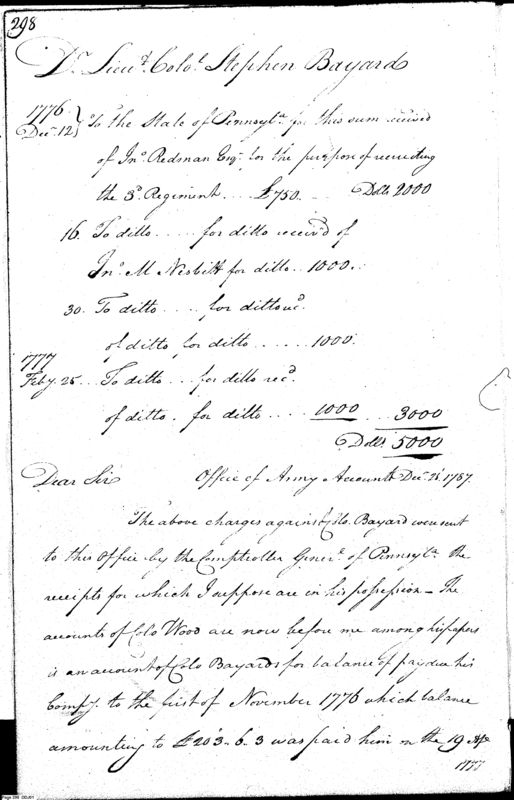 298
Dr. Lieut. Colol. Stephen Bayard
1776
Decr. 12 } To the State of Pennsyla. for this sum received
of Jno. Redman Esqr. for the purpose of recruiting
the 3d. Regiment .... £750. .. Dolls. 2000
16. To ditto ..... for ditto received of
Jno. M Nesbitt for ditto .. 1000..
30. To ditto .... for ditto recd.
of ditto for ditto ...... 1000.
1777
Feby. 25 ... To ditto ... for ditto recd.
of ditto . for ditto .... 1000 .. 3000
Dolls. 5000
Dear Sir Office of Army Accounts Decr. 21. 1787.
The above charges against Colo. Bayard were sent
to this Office by the Comptroller Generl. of Pennsyla. the
receipts for which I suppose are in his possession — The
accounts of Colo Wood are now before me among his papers
is an account of Colo Bayards for balance of pay due his
Compy. to the first of November 1776 which balance
amounting to £203. 6. 3 was paid him on the 19 Apr
1777
Page 298